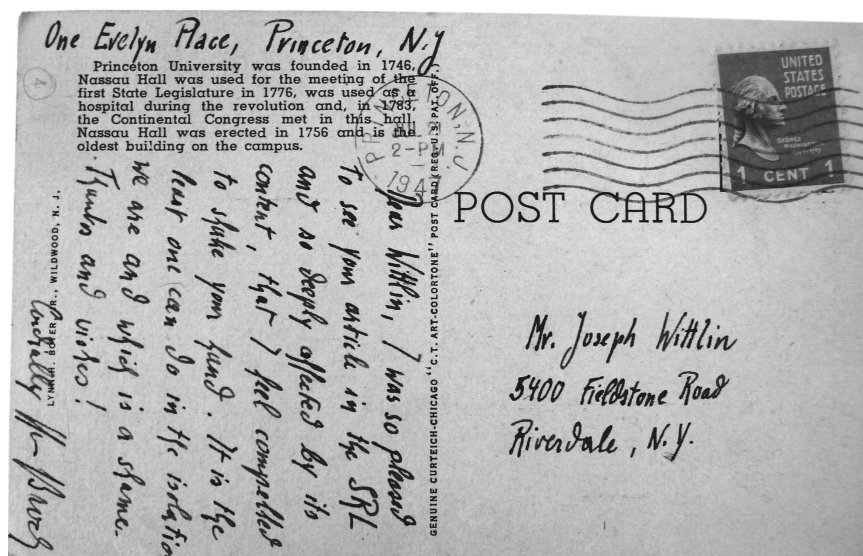 One Evelyn Place, Princeton, N.Y
Princeton University was founded in 1746,
Nassau Hall was used for the meeting of the
first State Legislature in 1776, was used as a
hospital during the revolution and, in 1783,
the Continental Congress met in this hall.
Nassau Hall was erected in 1756 and is the
oldest building on the campus.
Dear Wittlin, I was so pleased
to see your article in the SRL
and so deeply affected by its
content, that I feel compelled
to shake your hand. It is the
least one can do in the isolation
we are and which is a shame.
Thanks and wishes!
Cordially
LYNN H. BOYER, JR., WILDWOOD, N. J.
GENUINE CURTEICH-CHICAGO "C.T. ART-COLORTONE" POST CARD (REG. U.S. PAT. OFF.)
PRINCETON, N.J.
2-PM
UNITED
STATES
POSTAGE
GEORGE
WASHINGTON
1 CENT 1
POST CARD
Mr. Joseph Wittlin
5400 Fieldstone Road
Riverdale, N.Y.